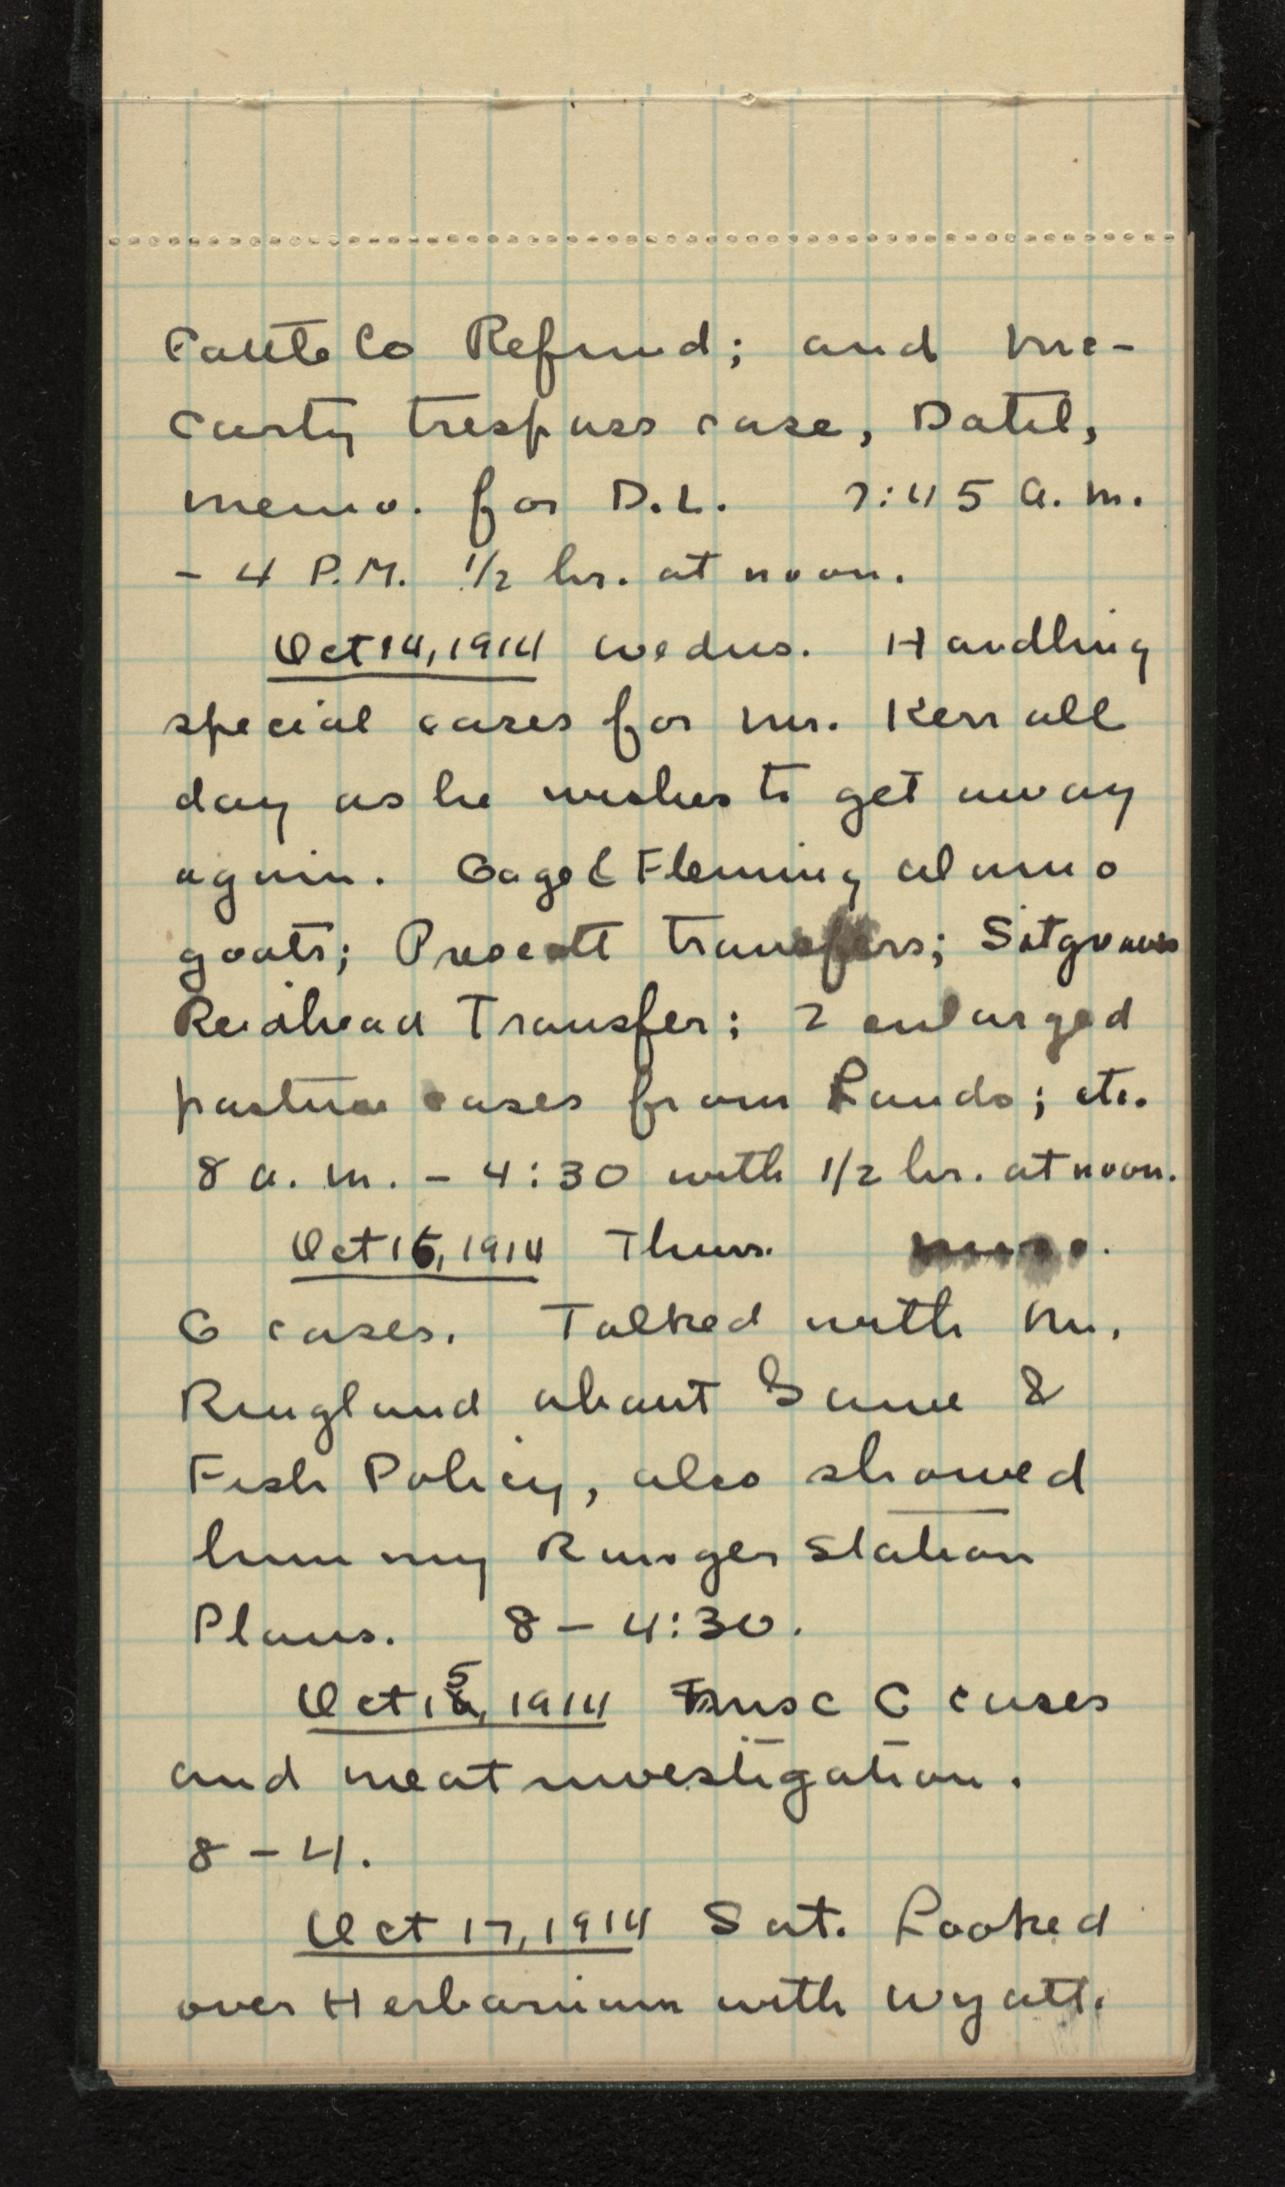 Cattle Co Refund; and Mc-
Carty trespass case, Datil,
memo. for D.L. 7:45 a.m.
- 4 P.M. 1/2 hr. at noon.
Oct 14, 1914 Wednes. Handling
special cases for Mr. Kerr all
day as he wishes to get away
again. Gage & Fleming Alamo
goats; Prescott transfers; Sitgreaves
Reidhead Transfer; 2 enlarged
pasture cases from Lands; etc.
8 a.m. - 4:30 with 1/2 hr. at noon.
Oct 15, 1914 Thurs.
G cases. Talked with Mr.
Ringland about Game &
Fish Policy, also showed
him my Ranger Station
Plans. 8 - 4:30.
Oct 1 , 1914 Misc G cases
and meat investigation.
8 - 4.
Oct 17, 1914 Sat. Looked
over Herbarium with Wyatt.